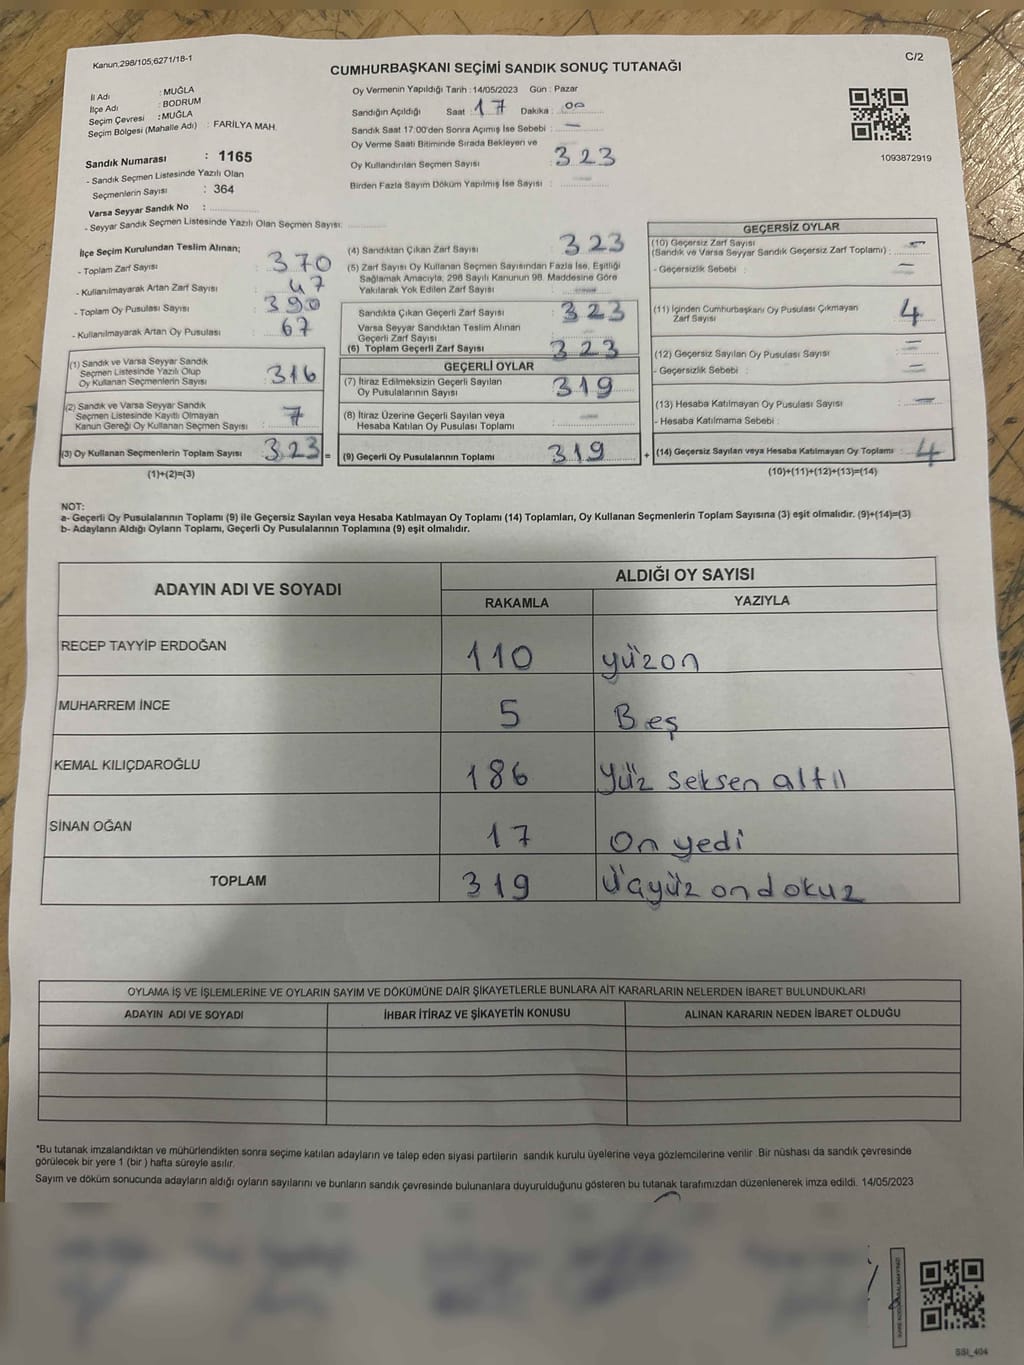 Kanun,298/105,6271/18-1
C/2
CUMHURBAŞKANI SEÇİMİ SANDIK SONUÇ TUTANAĞI
İl Adı : MUĞLA
İlçe Adı : BODRUM
Seçim Çevresi : MUĞLA
Seçim Bölgesi (Mahalle Adı) : FARİLYA MAH.
Sandık Numarası : 1165
- Sandık Seçmen Listesinde Yazılı Olan
Seçmenlerin Sayısı : 364
Varsa Seyyar Sandık No :
- Seyyar Sandık Seçmen Listesinde Yazılı Olan Seçmen Sayısı:
Oy Vermenin Yapıldığı Tarih : 14/05/2023 Gün : Pazar
Sandığın Açıldığı Saat : 17 Dakika : 00
Sandık Saat 17:00'den Sonra Açımış İse Sebebi : —
Oy Verme Saati Bitiminde Sırada Bekleyen ve
Oy Kullandırılan Seçmen Sayısı : 323
Birden Fazla Sayım Döküm Yapılmış İse Sayısı : —
1093872919
İlçe Seçim Kurulundan Teslim Alınan;
- Toplam Zarf Sayısı : 370
- Kullanılmayarak Artan Zarf Sayısı : 47
- Toplam Oy Pusulası Sayısı : 390
- Kullanılmayarak Artan Oy Pusulası : 67
(1) Sandık ve Varsa Seyyar Sandık
Seçmen Listesinde Yazılı Olup
Oy Kullanan Seçmenlerin Sayısı : 316
(2) Sandık ve Varsa Seyyar Sandık
Seçmen Listesinde Kayıtlı Olmayan
Kanun Gereği Oy Kullanan Seçmen Sayısı : 7
(3) Oy Kullanan Seçmenlerin Toplam Sayısı : 323 =
(1)+(2)=(3)
(4) Sandıktan Çıkan Zarf Sayısı : 323
(5) Zarf Sayısı Oy Kullanan Seçmen Sayısından Fazla İse, Eşitliği
Sağlamak Amacıyla, 298 Sayılı Kanunun 98. Maddesine Göre
Yakılarak Yok Edilen Zarf Sayısı : —
Sandıkta Çıkan Geçerli Zarf Sayısı : 323
Varsa Seyyar Sandıktan Teslim Alınan
Geçerli Zarf Sayısı : —
(6) Toplam Geçerli Zarf Sayısı : 323
GEÇERLİ OYLAR
(7) İtiraz Edilmeksizin Geçerli Sayılan
Oy Pusulalarının Sayısı : 319
(8) İtiraz Üzerine Geçerli Sayılan veya
Hesaba Katılan Oy Pusulası Toplamı : —
(9) Geçerli Oy Pusulalarının Toplamı : 319 +
GEÇERSİZ OYLAR
(10) Geçersiz Zarf Sayısı
(Sandık ve Varsa Seyyar Sandık Geçersiz Zarf Toplamı) : —
- Geçersizlik Sebebi : —
(11) İçinden Cumhurbaşkanı Oy Pusulası Çıkmayan
Zarf Sayısı : 4
(12) Geçersiz Sayılan Oy Pusulası Sayısı : —
- Geçersizlik Sebebi : —
(13) Hesaba Katılmayan Oy Pusulası Sayısı : —
- Hesaba Katılmama Sebebi :
(14) Geçersiz Sayılan veya Hesaba Katılmayan Oy Toplamı : 4
(10)+(11)+(12)+(13)=(14)
NOT:
a- Geçerli Oy Pusulalarının Toplamı (9) ile Geçersiz Sayılan veya Hesaba Katılmayan Oy Toplamı (14) Toplamları, Oy Kullanan Seçmenlerin Toplam Sayısına (3) eşit olmalıdır. (9)+(14)=(3)
b- Adayların Aldığı Oyların Toplamı, Geçerli Oy Pusulalarının Toplamına (9) eşit olmalıdır.
ADAYIN ADI VE SOYADI
ALDIĞI OY SAYISI
RAKAMLA YAZIYLA
RECEP TAYYİP ERDOĞAN 110 yüzon
MUHARREM İNCE 5 Beş
KEMAL KILIÇDAROĞLU 186 Yüz seksen altıl
SİNAN OĞAN 17 On yedi
TOPLAM 319 Üçyüz on dokuz
OYLAMA İŞ VE İŞLEMLERİNE VE OYLARIN SAYIM VE DÖKÜMÜNE DAİR ŞİKAYETLERLE BUNLARA AİT KARARLARIN NELERDEN İBARET BULUNDUKLARI
ADAYIN ADI VE SOYADI İHBAR İTİRAZ VE ŞİKAYETİN KONUSU ALINAN KARARIN NEDEN İBARET OLDUĞU
*Bu tutanak imzalandıktan ve mühürlendikten sonra seçime katılan adayların ve talep eden siyasi partilerin sandık kurulu üyelerine veya gözlemcilerine verilir. Bir nüshası da sandık çevresinde
görülecek bir yere 1 (bir ) hafta süreyle asılır.
Sayım ve döküm sonucunda adayların aldığı oyların sayılarını ve bunların sandık çevresinde bulunanlara duyurulduğunu gösteren bu tutanak tarafımızdan düzenlenerek imza edildi. 14/05/2023
SSI_404